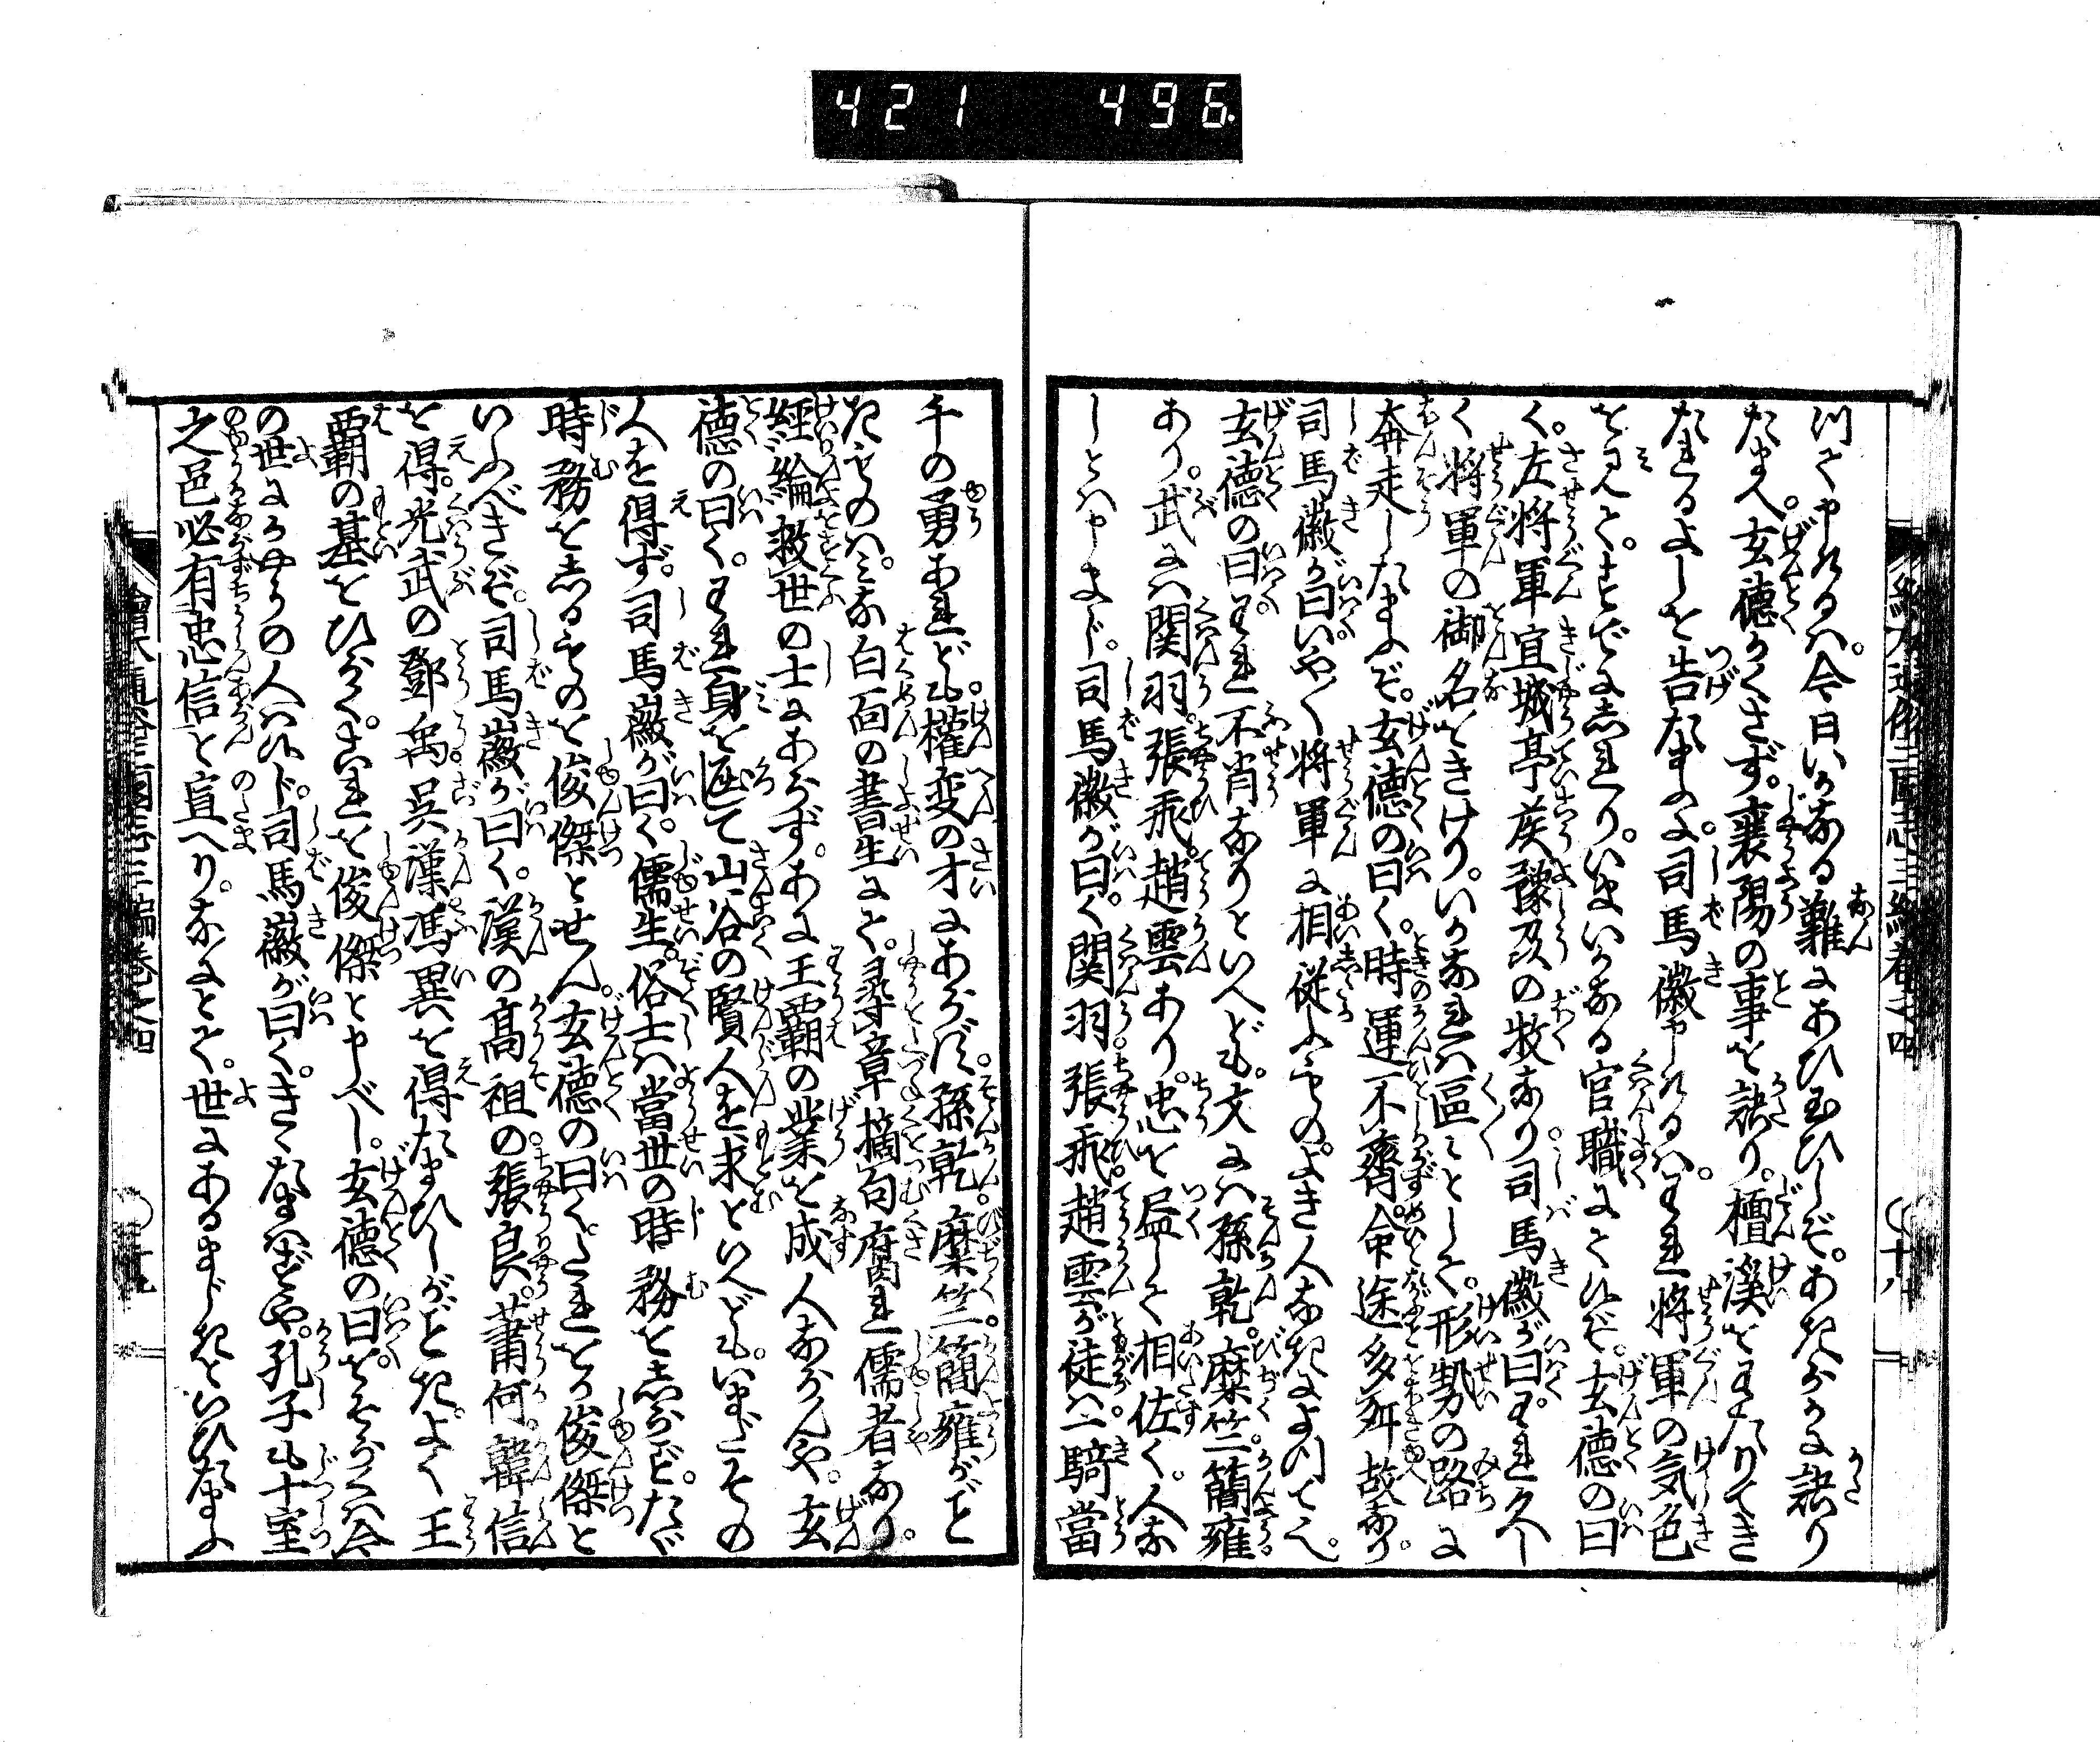 421 496.
繪本通俗三國志三編卷之四
〇十八
つて申けるハ今日いかなる難にあひ玉ひしぞ。あきらかに訣り
たまへ。玄徳かくさず。襄陽の事を訣り。檀溪をわたりてき
たれるよしを告たまふ。司馬徽申けるハ。われ将軍の気色
をみて。すでにしれり。いまいかなる官職にてひぞ。玄徳の曰
く。左将軍宜城亭侯豫州の牧なり。司馬徽が曰。われ久し
く将軍の御名をきけり。いかなれハ區〻として。形勢の路に
奔走したまふぞ。玄徳の曰く。時運不齊。命途多舛故なり。
司馬徽が曰。いやく将軍に相従ふもの。よき人なきによつてゝ。
玄徳の曰。われ不肖なりといへども。文にハ孫乾。糜竺。簡雍
あり。武にハ関羽。張飛。趙雲あり。忠を尽して相佐く。人な
しとハ申さじ。司馬徽が曰く。関羽。張飛。趙雲が徒ハ一騎當
千の勇あれども。權変の才にあらず。孫乾。糜竺。簡雍がごと
きものハ。みな白面の書生にて。尋章摘句腐れ儒者なり。
經綸救世の士にあらず。あに王覇の業を成人ならんや。玄
徳の曰く。われ身を函て山谷の賢人を求といへども。いまだその
人を得ず。司馬徽が曰く。儒生。俗士ハ當世の時務をしらず。たゞ
時務をしるものを俊傑とせん。玄徳の曰く。たれをか俊傑と
いふべきぞ。司馬徽が曰く。漢の高祖の張良。蕭何。韓信
を得。光武の鄧禹。呉漢。馮異を得たまひしがごとき。よく王
覇の基をひらく。これを俊傑と申べし。玄徳の曰。をそらくハ今
の世にかやうの人ハあらじ。司馬徽が曰く。きゝたまはずや。孔子も十室
之邑必有忠信と宣へり。なにとて。世にあるまじきといひたまふ
繪本通俗三國志三編卷之四
〇十九